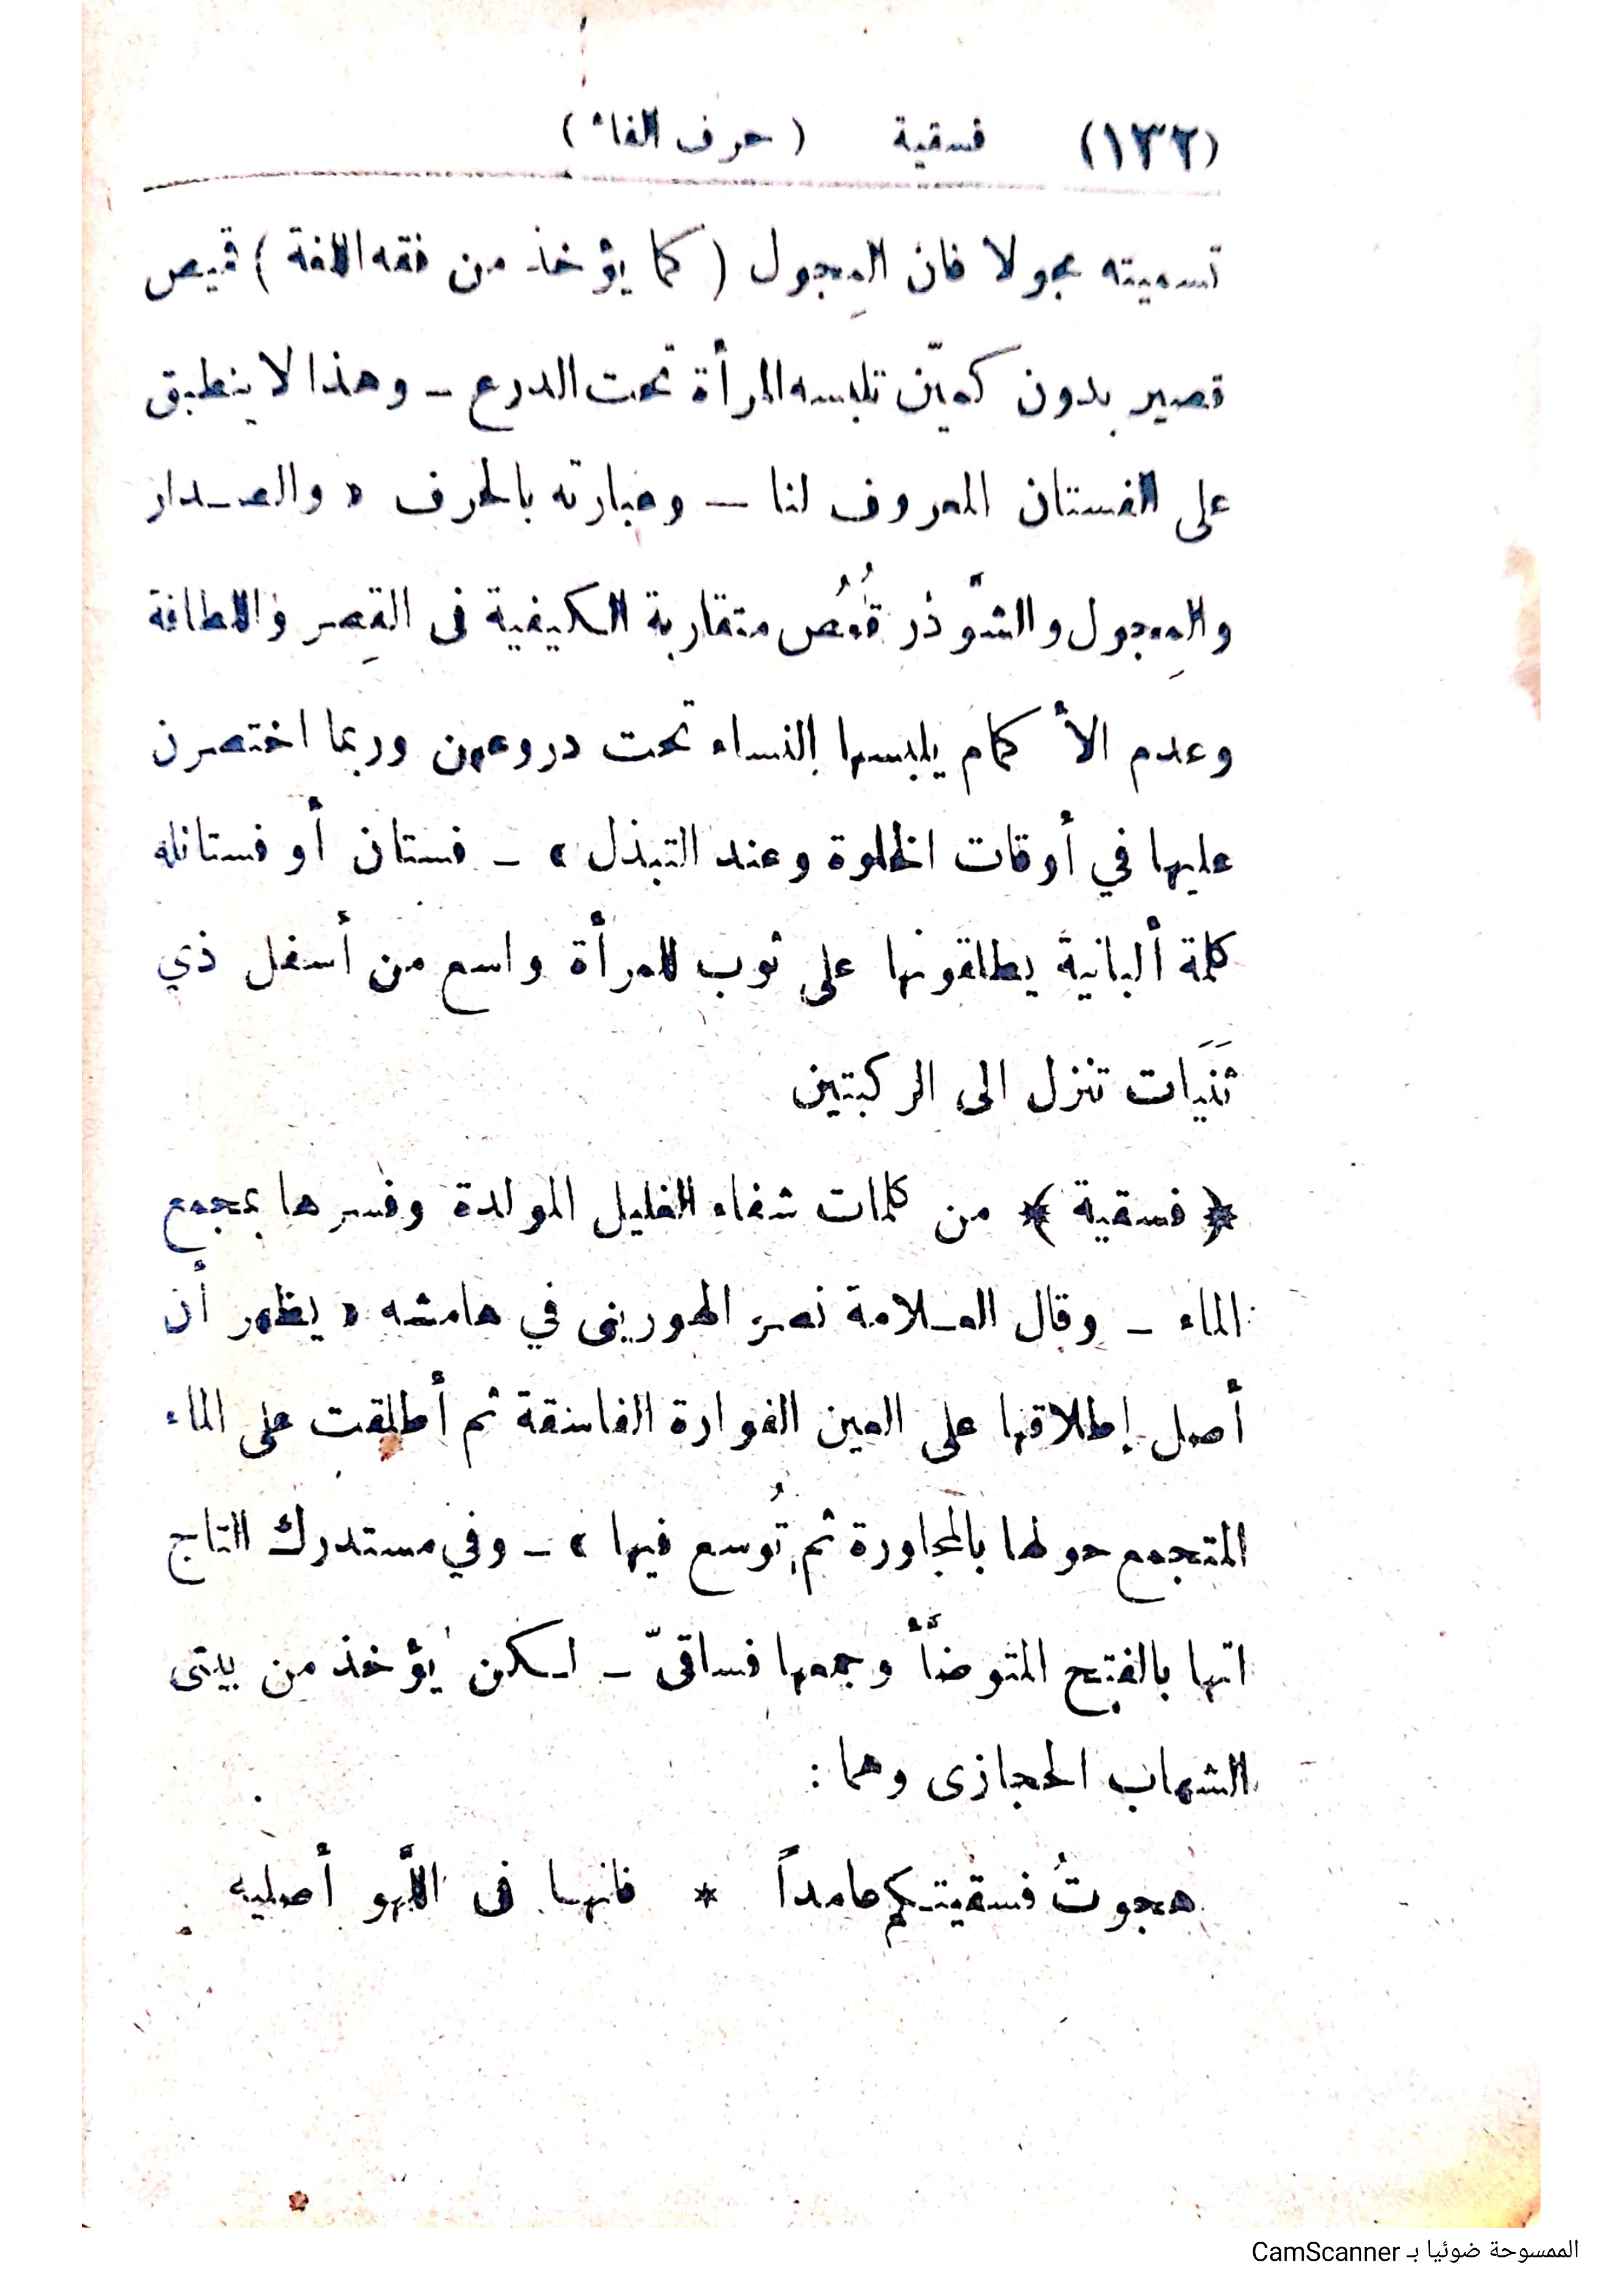 (١٣٢) فسقية (حرف الفاء)
تسميته مجولا فان المِجول (كما يؤخذ من فقه اللغة) قميص
قصير بدون كميّن تلبسه المرأة تحت الدرع - وهذا لا ينطبق
على الفستان المعروف لنا - وعبارته بالحرف « والصدار
والمِجول والشَّوذر قُمُص متقاربة الكيفية فى القِصر واللطافة
وعدم الأكمام يلبسها النساء تحت دروعهن وربما اختصرن
عليها في أوقات الخلوة وعند التبذل » - فستان أو فستانله
كلمة ألبانية يطلقونها على ثوب للمرأة واسع من أسفل ذي
ثَنَيَات تنزل الى الركبتين
﴿ فسقية ﴾ من كلمات شفاء الغليل المولدة وفسرها بمجمع
الماء - وقال العلامة نصر الهورينى في هامشه « يظهر أن
أصل إطلاقها على العين الفوارة الفاسقة ثم أطلقت على الماء
المتجمع حولها بالمجاورة ثم تُوسع فيها » - وفي مستدرك التاج
انها بالفتح المتوضَّأ وجمعها فساقىّ - لكن يؤخذ من بيتى
الشهاب الحجازى وهما :
هجوتُ فسقيتكم عامداً * فانها فى اللَّهو أصليه
الممسوحة ضوئيا بـ CamScanner